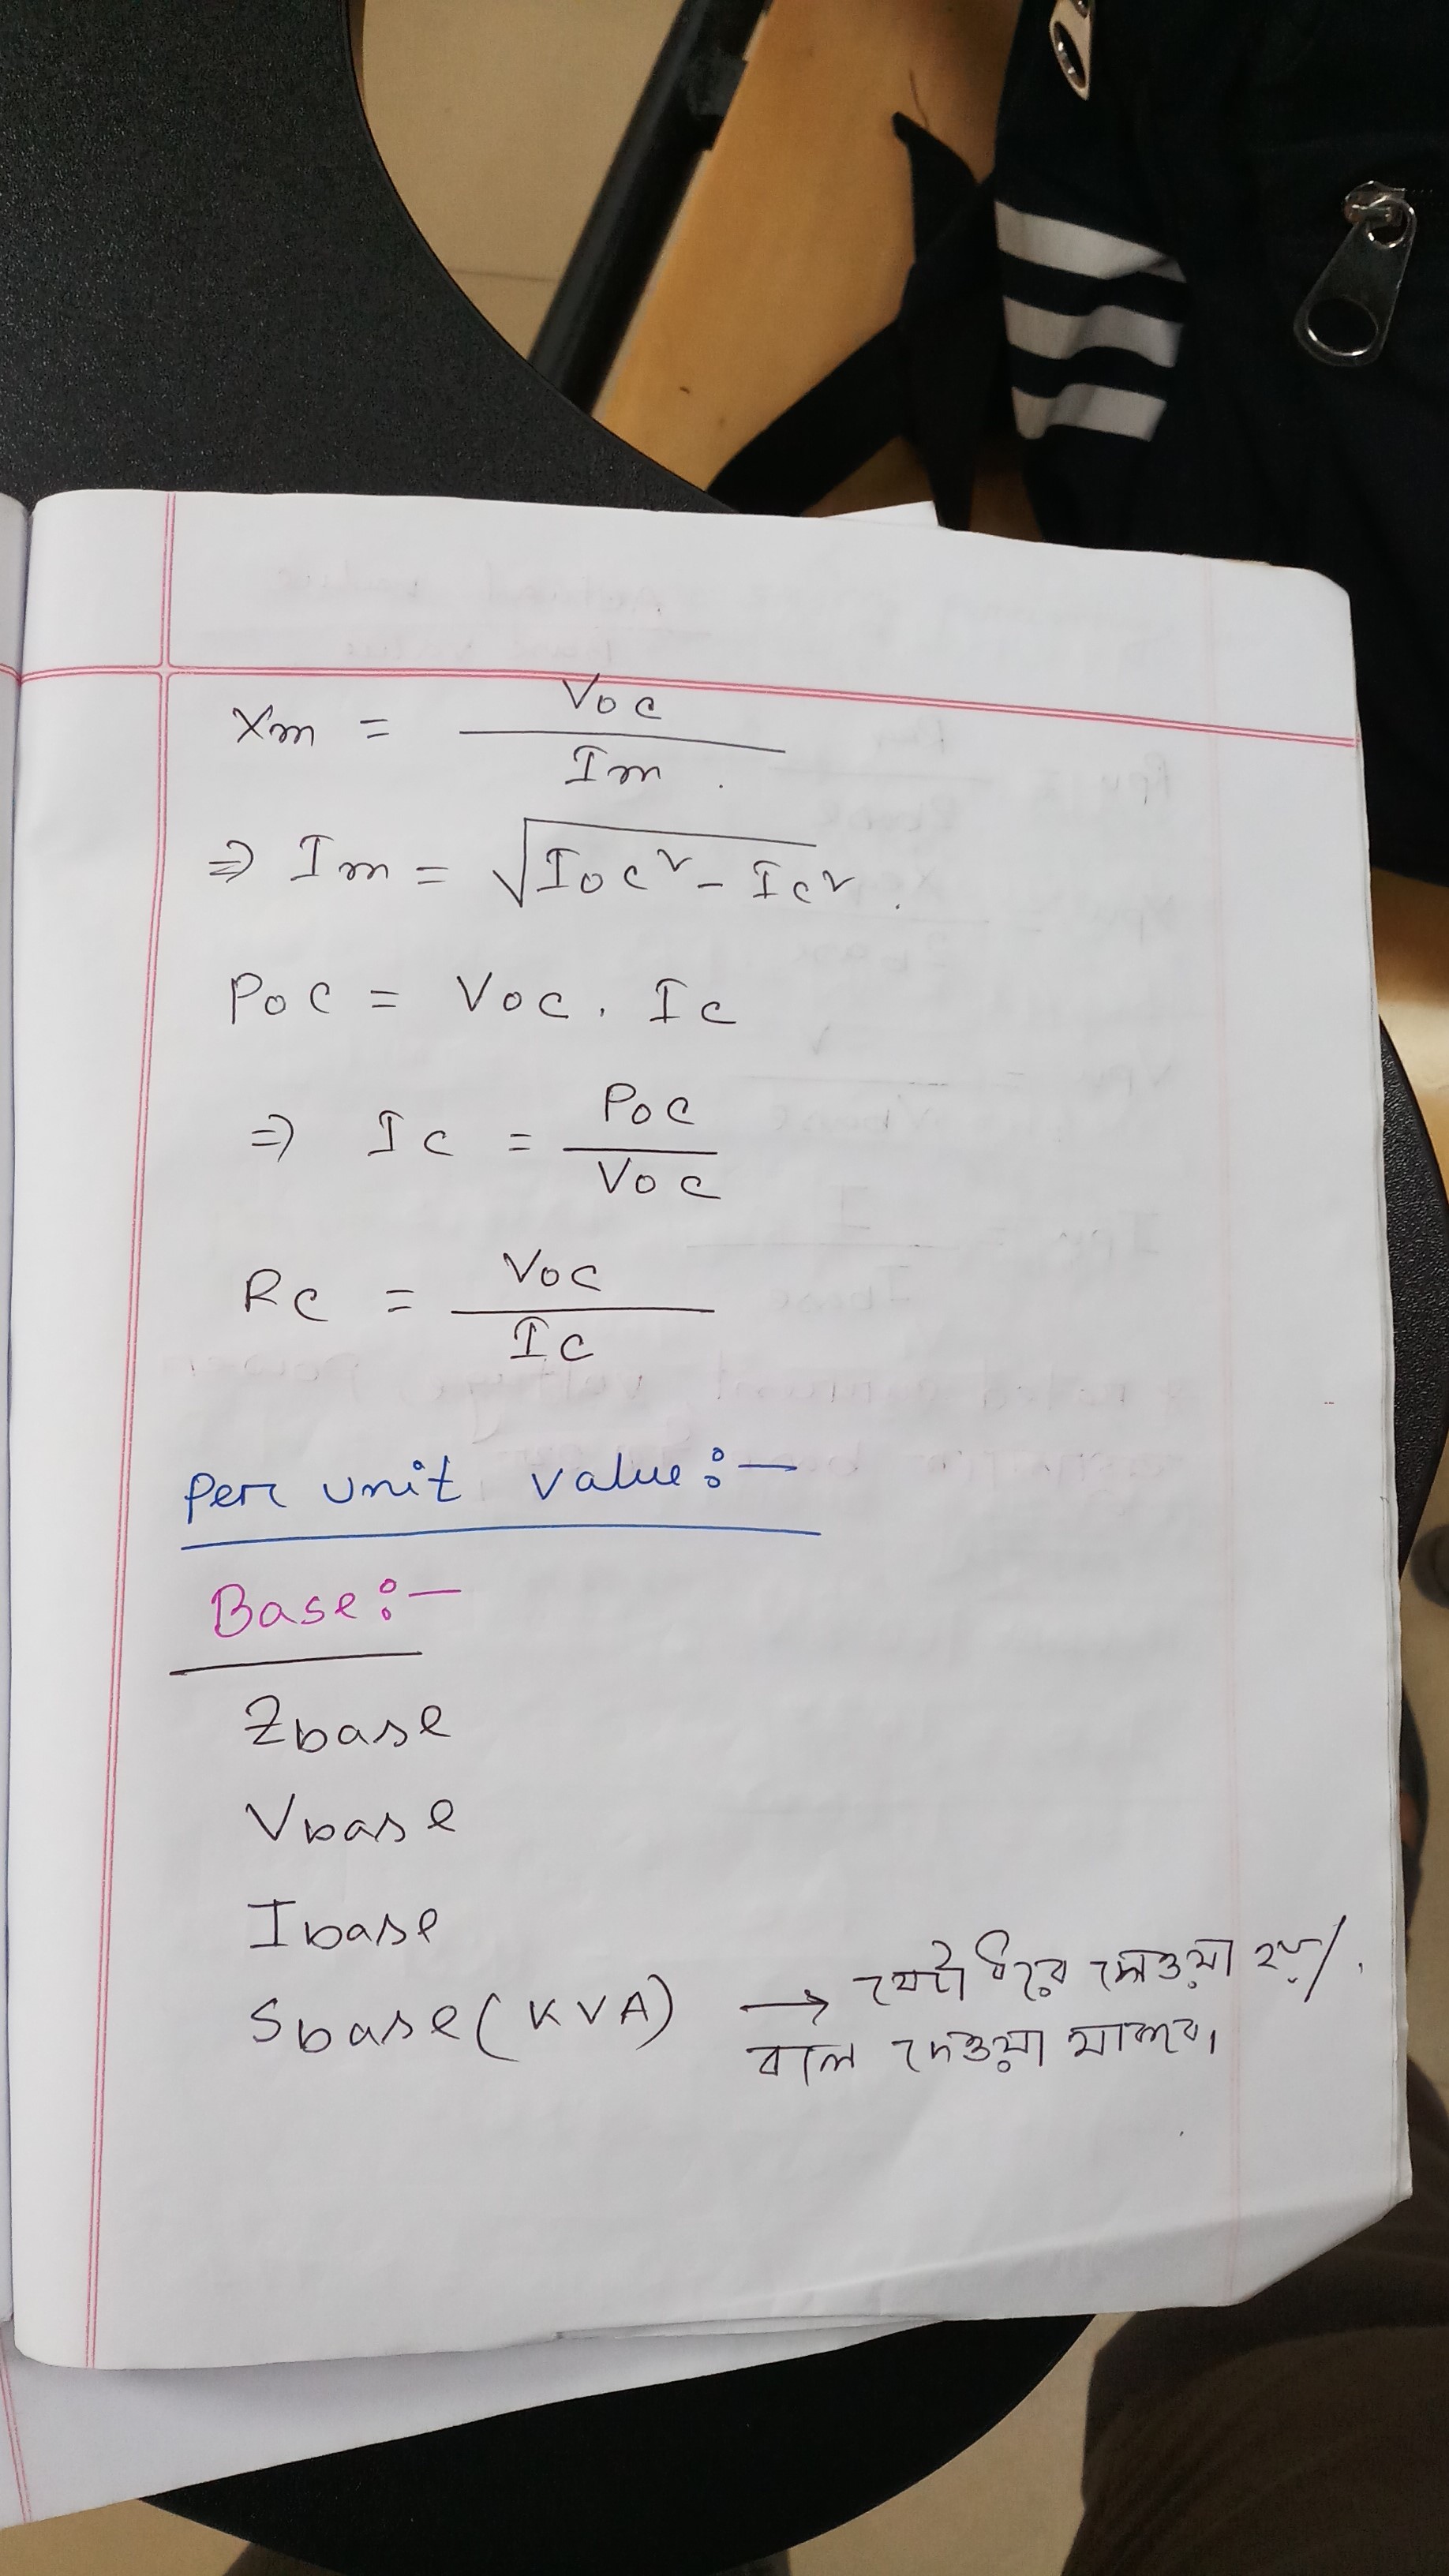 Xm = Voc / Im .
⇒ Im = √Ioc² - Ic² .
Poc = Voc . Ic
⇒ Ic = Poc / Voc
Rc = Voc / Ic
Per unit value:-
Base:-
Zbase
Vbase
Ibase
Sbase (KVA) → যেটা ধরে নেওয়া হয়/.
বলে দেওয়া থাকবে।